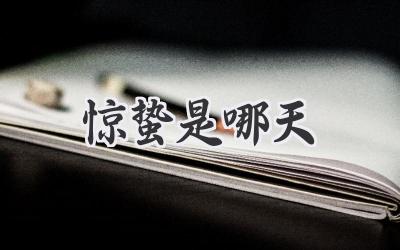 惊蛰是哪天